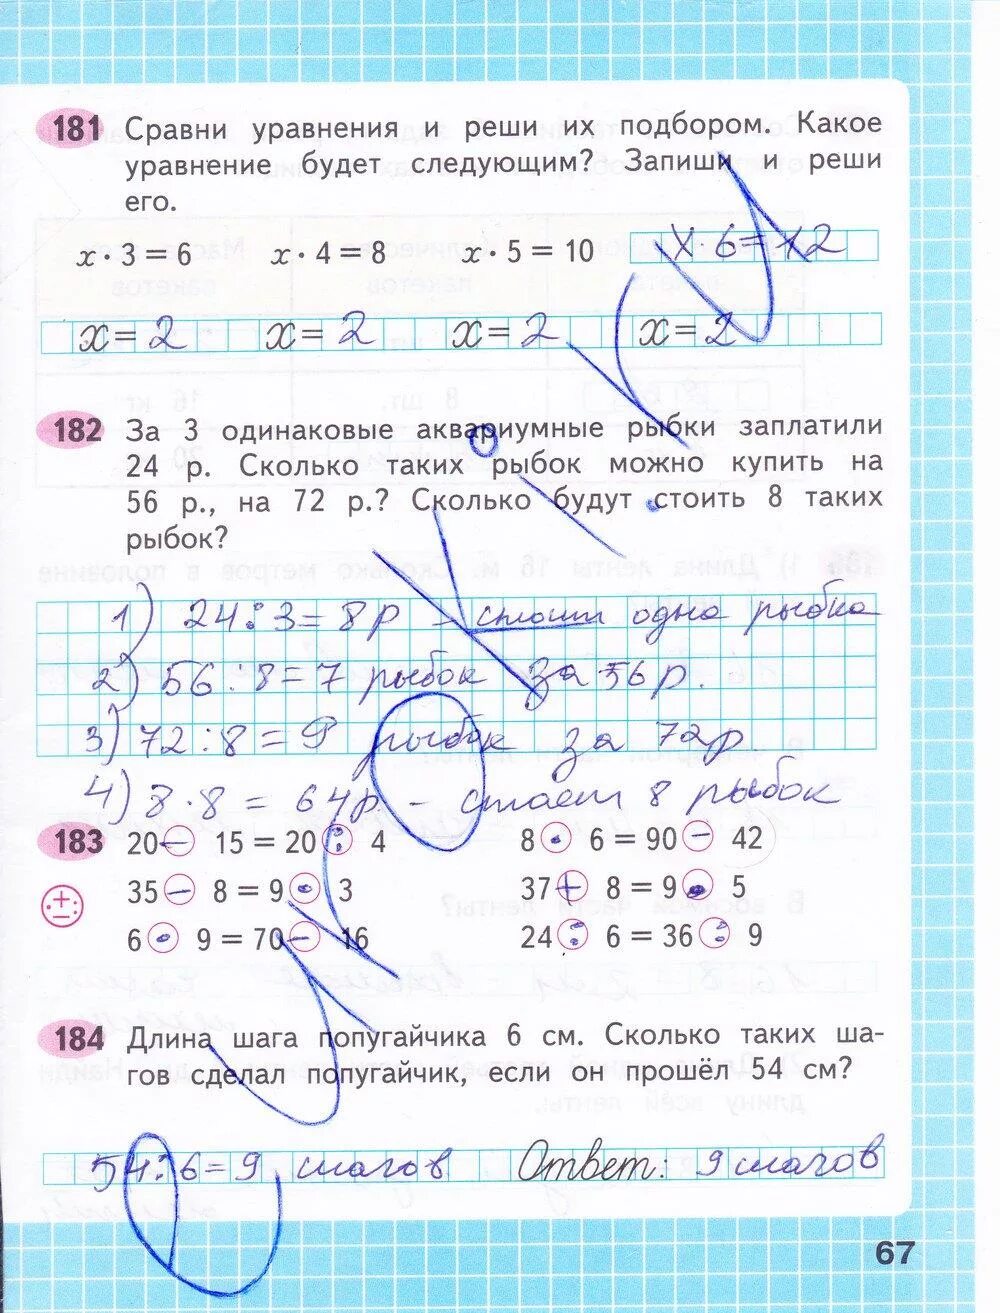 181 Сравни уравнения и реши их подбором. Какое
уравнение будет следующим? Запиши и реши
его.
x · 3 = 6 x · 4 = 8 x · 5 = 10 x 6 = 12
x = 2 x = 2 x = 2 x = 2
182 За 3 одинаковые аквариумные рыбки заплатили
24 р. Сколько таких рыбок можно купить на
56 р., на 72 р.? Сколько будут стоить 8 таких
рыбок?
1) 24 : 3 = 8 р – стоит одна рыбка
2) 56 : 8 = 7 рыбок за 56 р.
3) 72 : 8 = 9 рыбок за 72 р
4) 8 · 8 = 64 р – стоят 8 рыбок
183 20 – 15 = 20 : 4 8 · 6 = 90 – 42
35 – 8 = 9 · 3 37 + 8 = 9 · 5
6 · 9 = 70 – 16 24 : 6 = 36 : 9
184 Длина шага попугайчика 6 см. Сколько таких ша-
гов сделал попугайчик, если он прошёл 54 см?
54 : 6 = 9 шагов Ответ: 9 шагов
67